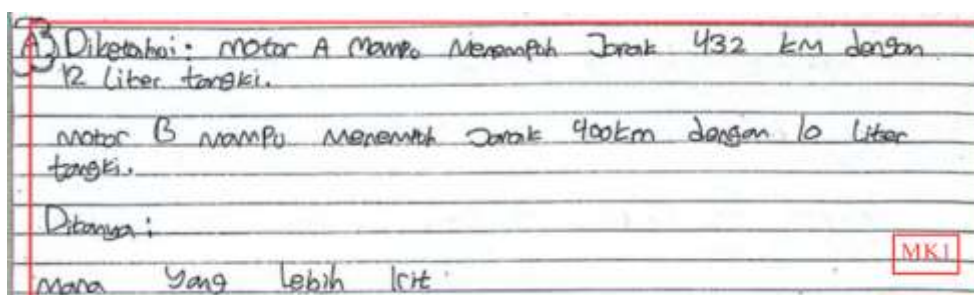 A3 Diketahui: Motor A Mampu Menempuh Jarak 432 km dengan
12 Liter tangki.
Motor B mampu Menempuh Jarak 400km dengan 10 Liter
tangki.
Ditanya:
MK1
Mana yang lebih Irit.